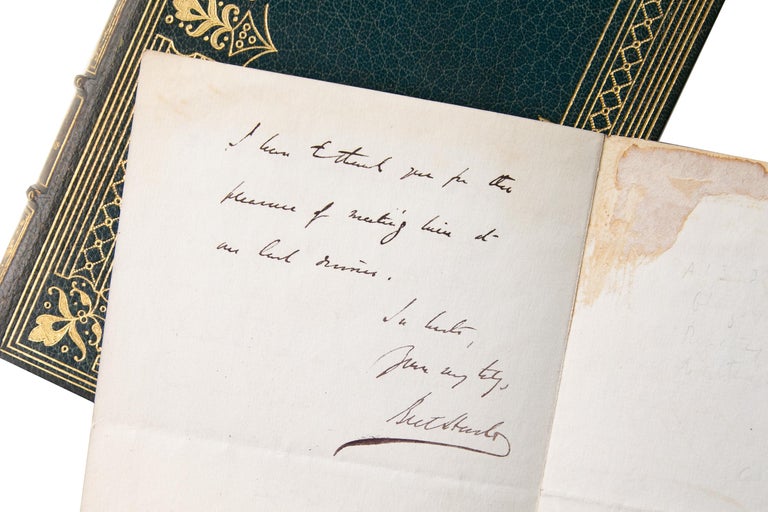 I have to thank you for the
pleasure of meeting him at
our last dinner.
In haste,
Yours very truly,
Bret Harte